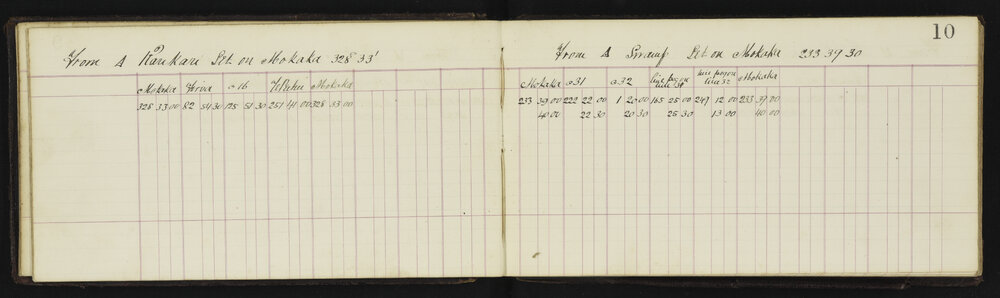 10
From Δ Raukari Set on Mokaka 328 33'
Mokaka o 16 Mokaka
328 33 00 82 54 30 125 51 30 251 41 00 328 33 00
From Δ Swamp Set on Mokaka 233 39 30
Mokaka o 31 o 32 line peg on line 31 line peg on line 32 Mokaka
233 39 00 222 22 00 1 20 00 165 25 00 249 12 00 233 39 00
40 00 22 30 20 30 25 30 13 00 40 00